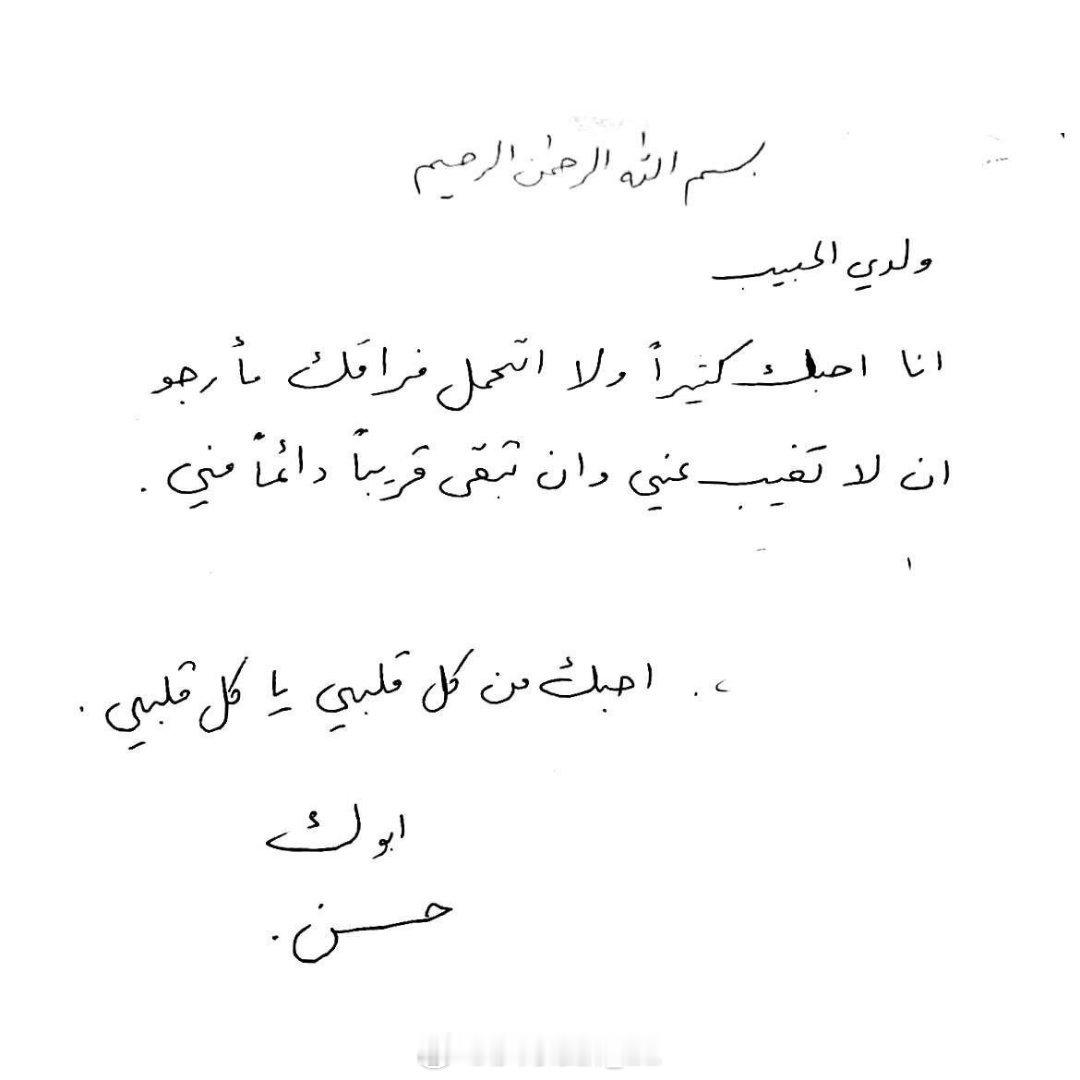 بسم الله الرحمن الرحيم
ولدي الحبيب
انا احبك كثيراً ولا اتحمل فراقك فأرجو
ان لا تغيب عني وان تبقى قريباً دائماً مني .
احبك من كل قلبي يا كل قلبي .
ابوك
حسن .